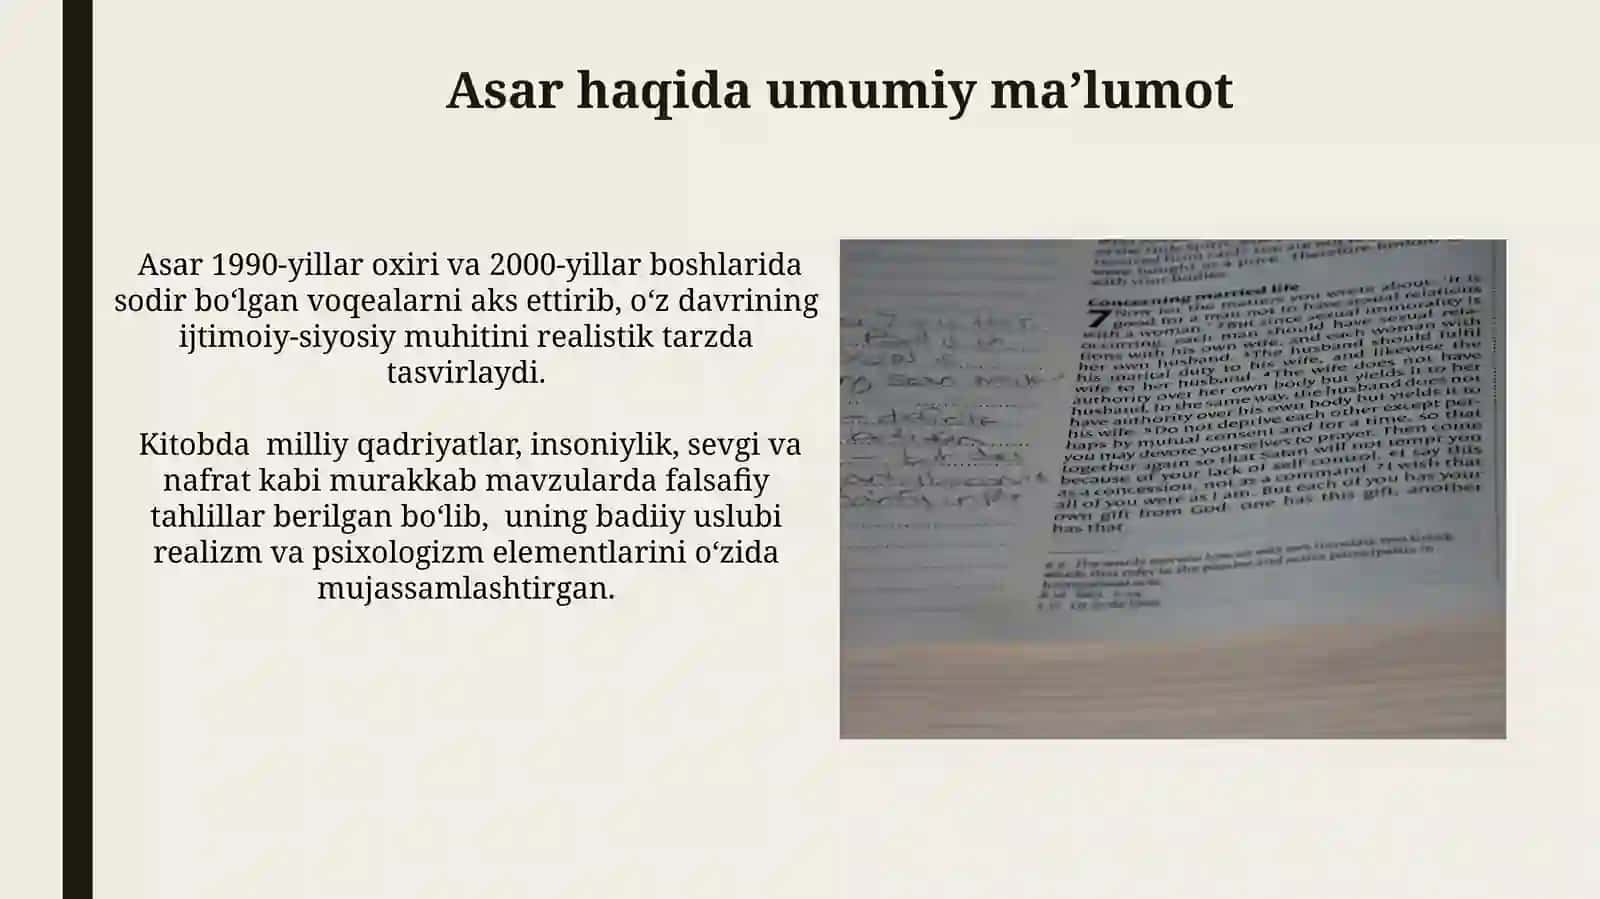 Asar haqida umumiy ma’lumot
Asar 1990-yillar oxiri va 2000-yillar boshlarida
sodir bo‘lgan voqealarni aks ettirib, o‘z davrining
ijtimoiy-siyosiy muhitini realistik tarzda
tasvirlaydi.
Kitobda  milliy qadriyatlar, insoniylik, sevgi va
nafrat kabi murakkab mavzularda falsafiy
tahlillar berilgan bo‘lib,  uning badiiy uslubi
realizm va psixologizm elementlarini o‘zida
mujassamlashtirgan.
with your bodies.
Concerning married life
7 Now for the matters you wrote about: ‘It is
good for a man not to have sexual relations
with a woman.’ ²But since sexual immorality is
occurring, each man should have sexual rela-
tions with his own wife, and each woman with
her own husband. ³The husband should fulfil
his marital duty to his wife, and likewise the
wife to her husband. ⁴The wife does not have
authority over her own body but yields it to her
husband. In the same way, the husband does not
have authority over his own body but yields it to
his wife. ⁵Do not deprive each other except per-
haps by mutual consent and for a time, so that
you may devote yourselves to prayer. Then come
together again so that Satan will not tempt you
because of your lack of self-control. ⁶I say this
as a concession, not as a command. ⁷I wish that
all of you were as I am. But each of you has your
own gift from God; one has this gift, another
has that.